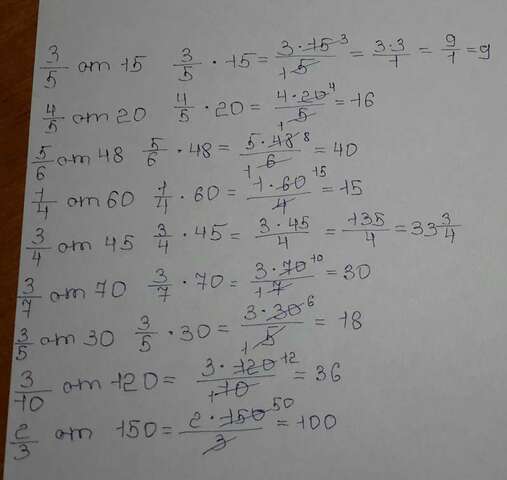 3/5 от 15 3/5 · 15 = 3·15 3/1 5 = 3·3/1 = 9/1 = 9
4/5 от 20 4/5 · 20 = 4·20 4/1 5 = 16
5/6 от 48 5/6 · 48 = 5·48 8/1 6 = 40
1/4 от 60 1/4 · 60 = 1·60 15/4 = 15
3/4 от 45 3/4 · 45 = 3·45/4 = 135/4 = 33 3/4
3/7 от 70 3/7 · 70 = 3·70 10/1 7 = 30
3/5 от 30 3/5 · 30 = 3·30 6/1 5 = 18
3/10 от 120 = 3·120 12/1 10 = 36
2/3 от 150 = 2·150 50/3 = 100